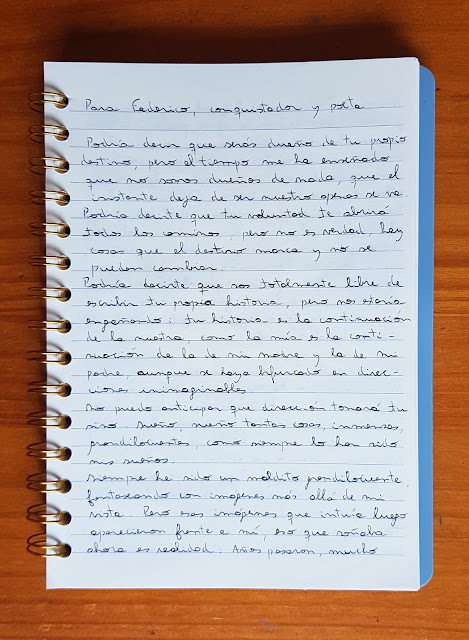 Para Federico, conquistador y poeta
Podría decir que serás dueño de tu propio
destino, pero el tiempo me ha enseñado
que no somos dueños de nada, que el
instante deja de ser nuestro apenas se va.
Podría decirte que tu voluntad te abrirá
todos los caminos, pero no es verdad, hay
cosas que el destino marca y no se
pueden cambiar.
Podría decirte que sos totalmente libre de
escribir tu propia historia, pero nos estaría
engañando: tu historia es la continuación
de la nuestra como la mía es la conti-
nuación de la de mi madre y la de mi
padre, aunque se haya bifurcado en direc-
ciones inimaginables.
No puedo anticipar que dirección tomará tu
sino. Sueño, sueño tantas cosas, inmensas,
grandilocuentes, como siempre lo han sido
mis sueños.
Siempre he sido un maldito grandilocuente,
fantaseando con imágenes más allá de mi
vista. Pero esas imágenes que intuía luego
aparecieron frente a mí, eso que soñaba
ahora es realidad. Años pasaron, mucho